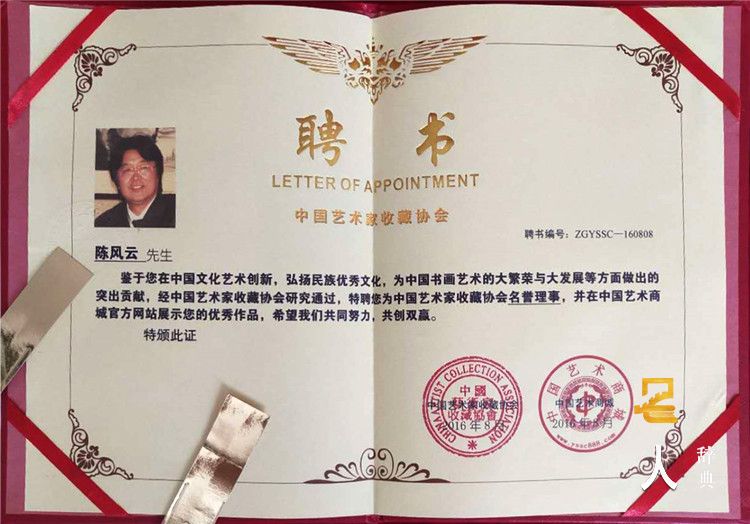 聘书
LETTER OF APPOINTMENT
中国艺术家收藏协会
聘书编号：ZGYSSC—160808
陈风云 先生
鉴于您在中国文化艺术创新，弘扬民族优秀文化，为中国书画艺术的大繁荣与大发展等方面做出的
突出贡献，经中国艺术家收藏协会研究通过，特聘您为中国艺术家收藏协会名誉理事，并在中国艺术商
城官方网站展示您的优秀作品，希望我们共同努力，共创双赢。
特颁此证
CHINA ARTIST COLLECTION ASSOCIATION
中國
藝術家
收藏協會
中国艺术家收藏协会
2016年8月
中国艺术商城
www.yssc888.com
中国艺术商城
2016年8月
名人
辞典